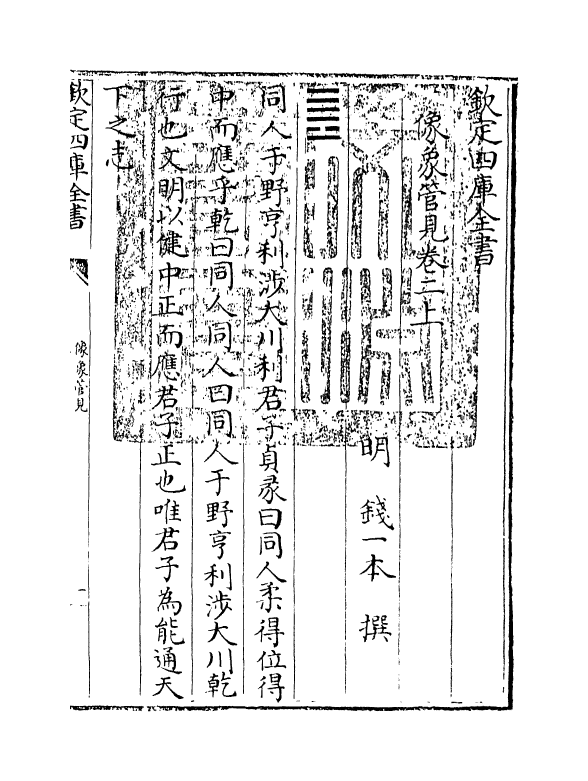 欽定四庫全書
像象管見卷二上
明 錢一本 撰
䷌
同人于野亨利涉大川利君子貞彖曰同人柔得位得
中而應乎乾曰同人同人曰同人于野亨利涉大川乾
行也文明以健中正而應君子正也唯君子為能通天
下之志
欽定四庫全書
像象管見